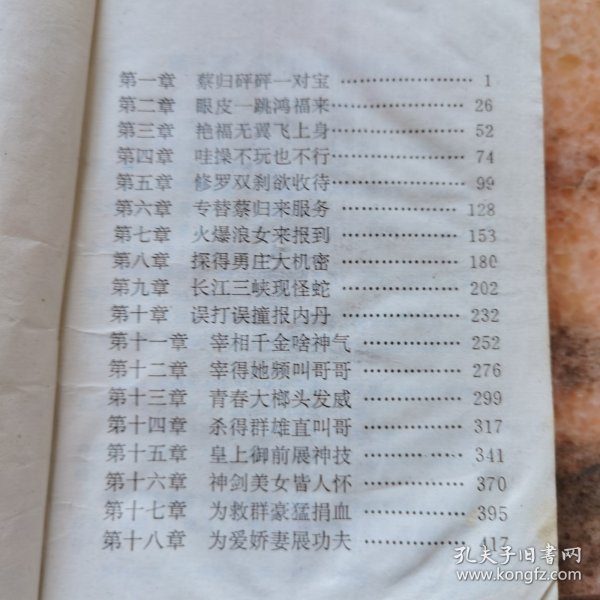 第一章 蔡归砰砰一对宝 …………………… 1
第二章 眼皮一跳鸿福来 …………………… 26
第三章 艳福无翼飞上身 …………………… 52
第四章 哇操不玩也不行 …………………… 74
第五章 修罗双刹欲收待 …………………… 99
第六章 专替蔡归来服务 …………………… 128
第七章 火爆浪女来报到 …………………… 153
第八章 探得勇庄大机密 …………………… 180
第九章 长江三峡现怪蛇 …………………… 202
第十章 误打误撞报内丹 …………………… 232
第十一章 宰相千金啥神气 ………………… 252
第十二章 宰得她频叫哥哥 ………………… 276
第十三章 青春大榔头发威 ………………… 299
第十四章 杀得群雄直叫哥 ………………… 317
第十五章 皇上御前展神技 ………………… 341
第十六章 神剑美女皆人怀 ………………… 370
第十七章 为救群豪猛捐血 ………………… 395
第十八章 为爱娇妻展功夫 ………………… 417
孔夫子旧书网
www.kongfz.com